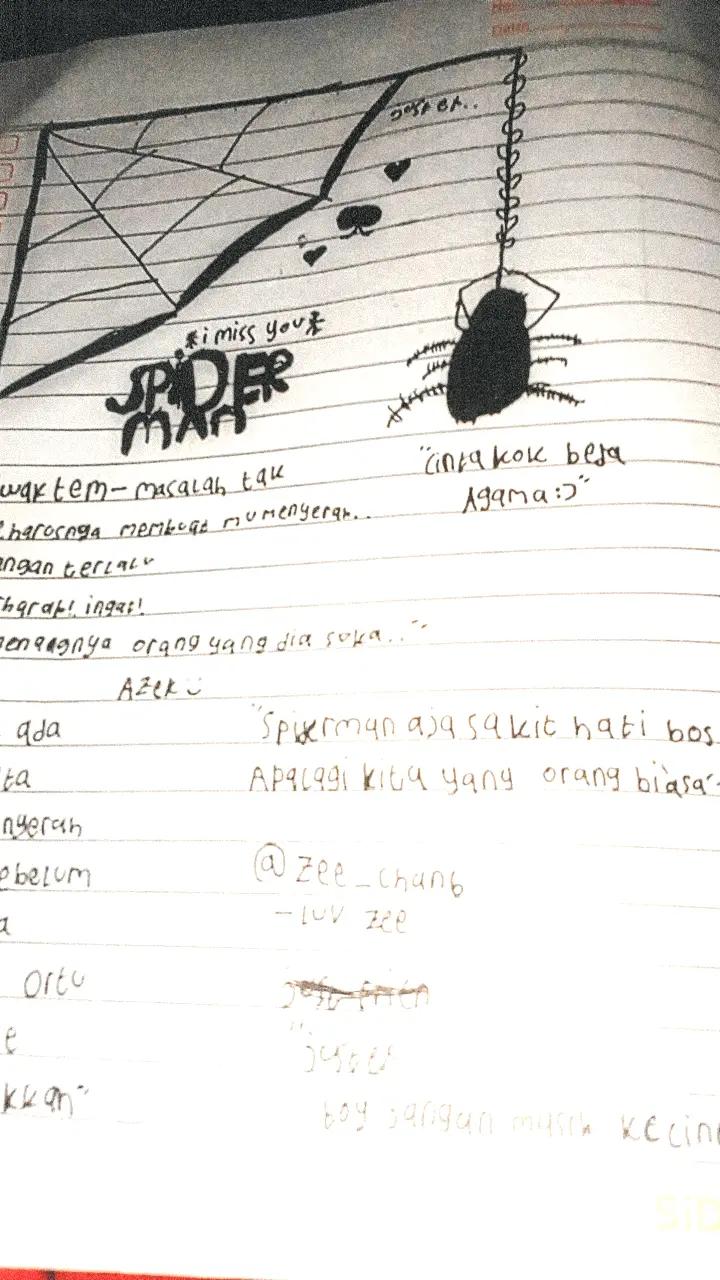 No:
Date:
*i miss you*
SPIDER
MAN
"Cinta kok beda
Agama :)"
masalah tak
membuat mu menyerah..
angan terlalu
ingat!
orang yang dia suka.."
Azek
ada
ta
"Spiderman aja sakit hati bos
Apalagi kita yang orang biasa"
ngerah
ebelum
@zee_chan6
a
-luv zee
ortu
e
kkan"
boy jangan masih kecin
SiD